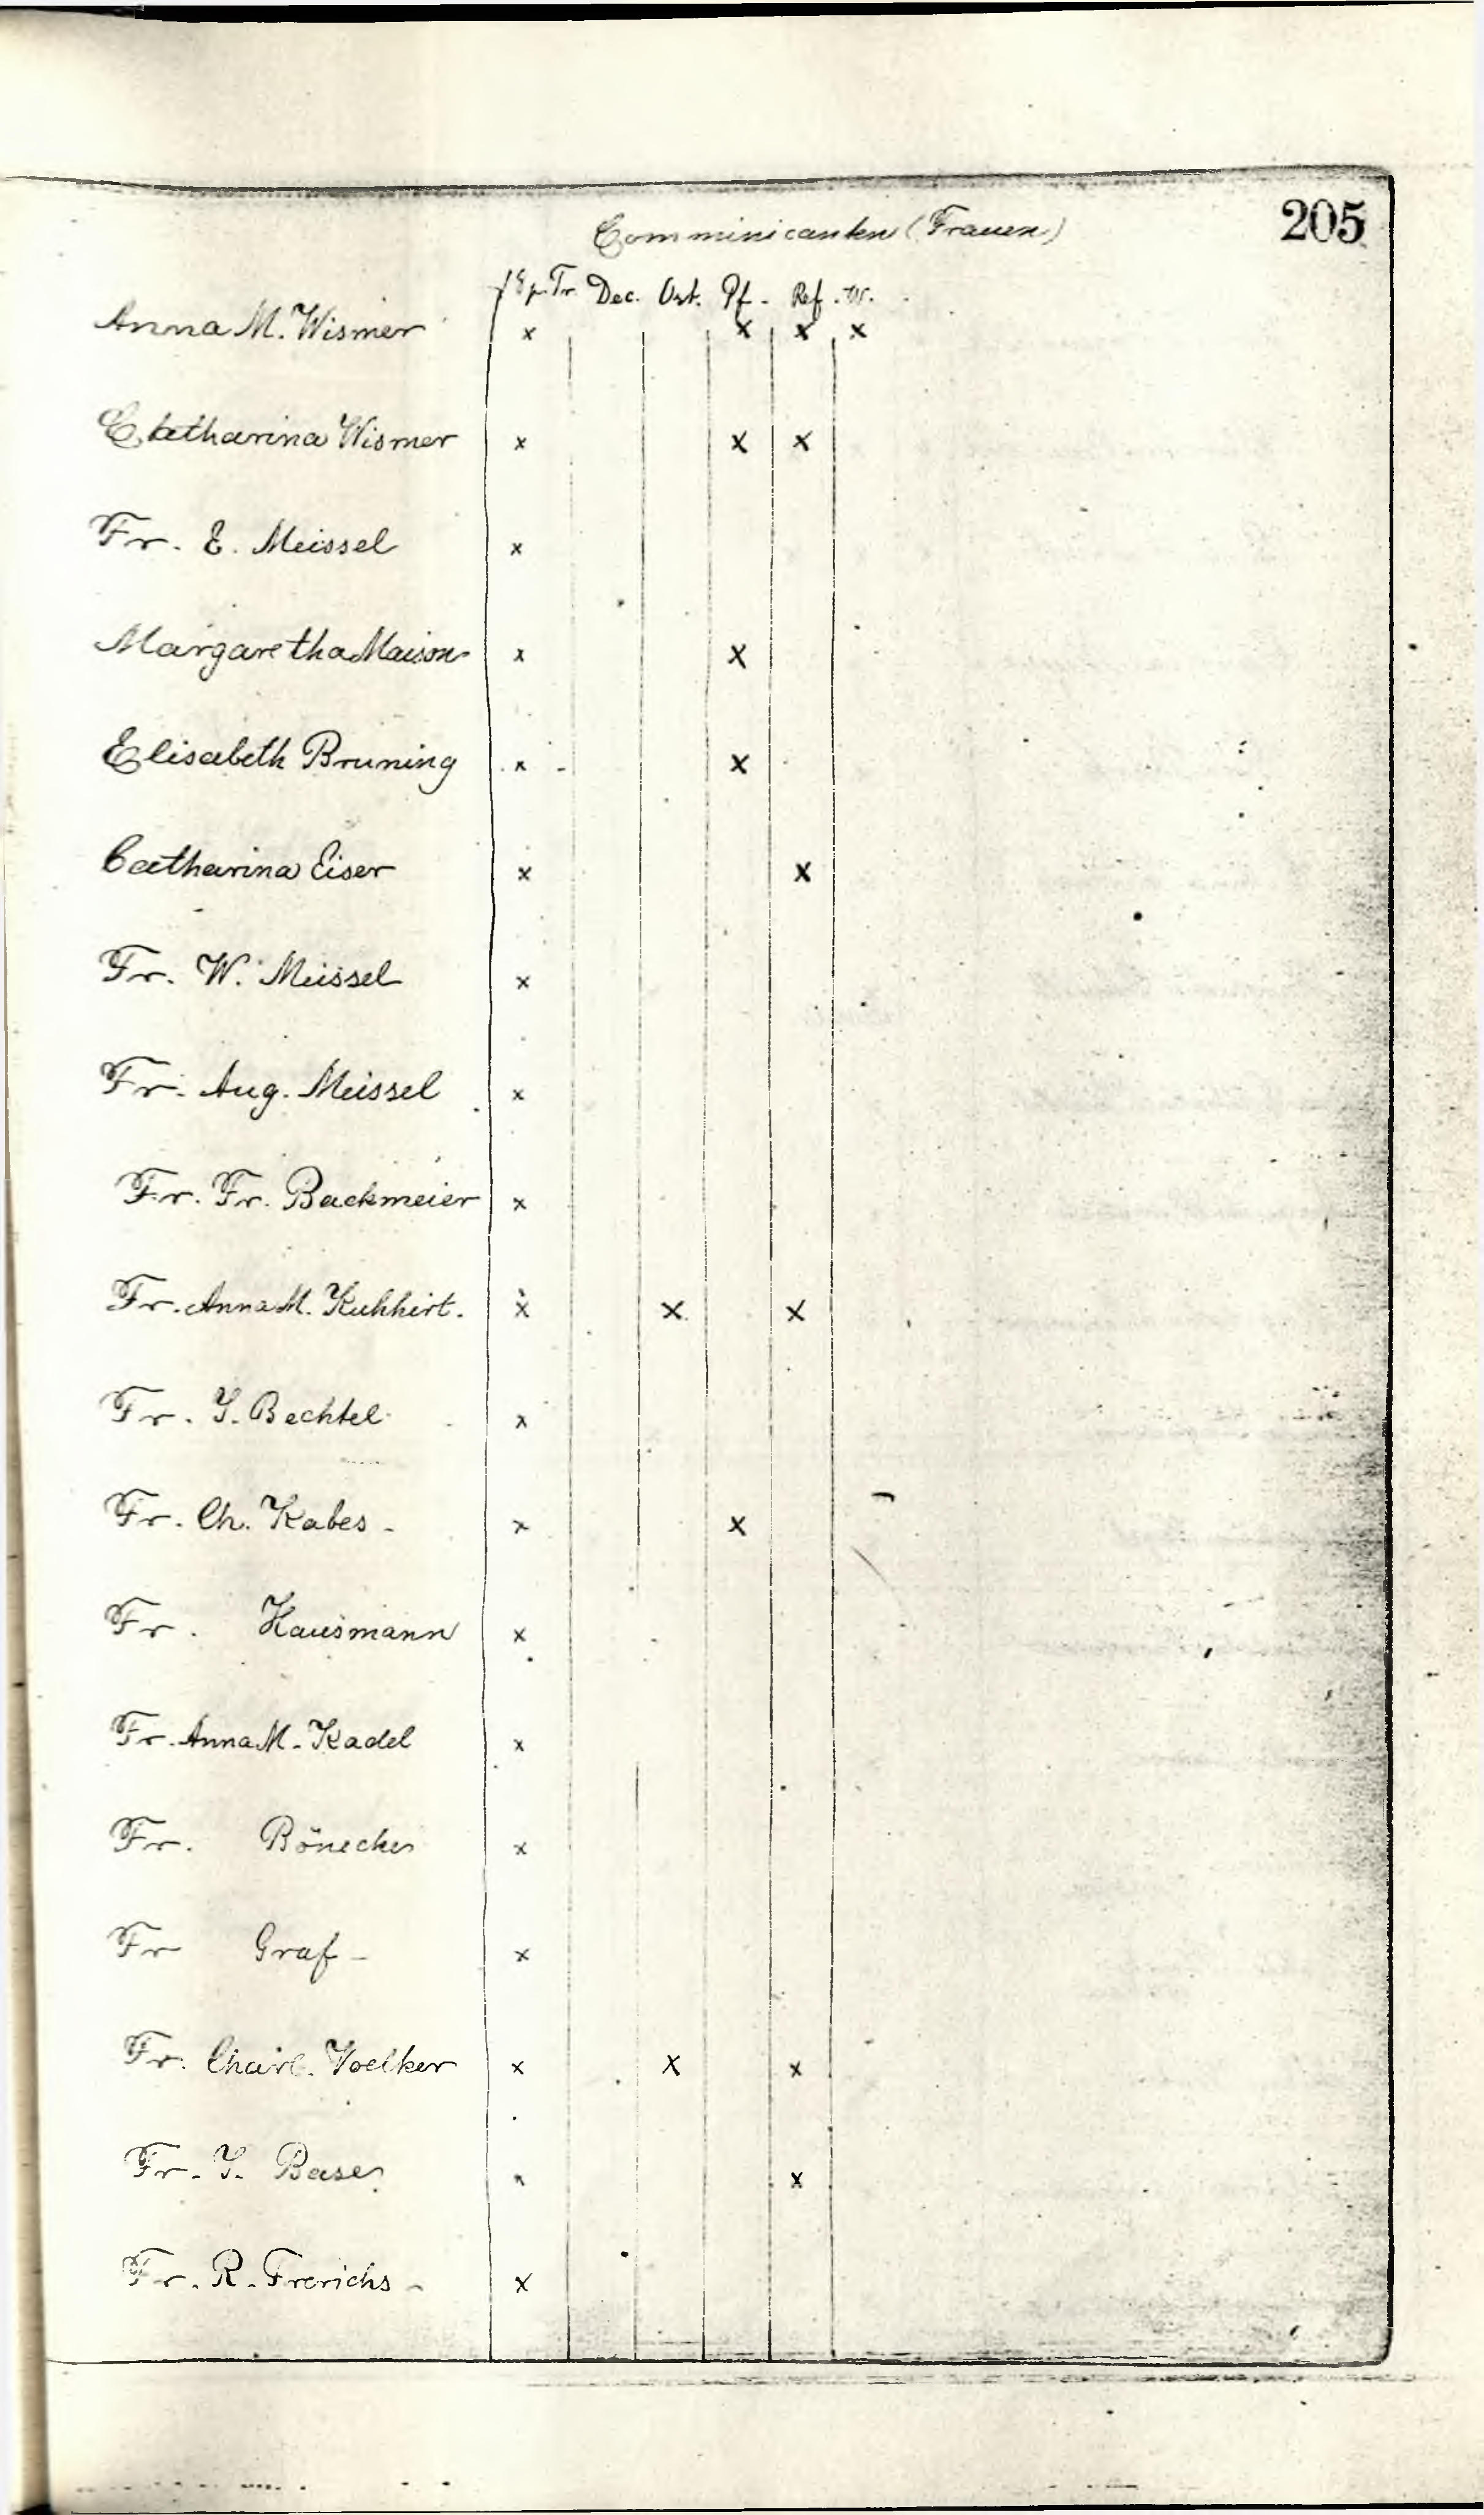 205
Comminicanten (Frauen)
Tr. Dec. Ost. Pf. Ref. W.
Anna M. Wismer x x x x
Catharina Wismer x x x
Fr. E. Meissel x
Margaretha Maison x x
Elisabeth Bruning x x
Catharina Eiser x x
Fr. W. Meissel x
Fr. Aug. Meissel x
Fr. Fr. Backmeier x
Fr. Anna M. Kuhhirt. x x x
Fr. J. Bechtel x
Fr. Ch. Kabes - x x
Fr. Hausmann x
Fr. Anna M. Kadel x
Fr. x
Fr Graf - x
Fr. Charl. Voelker x x x
Fr. J. x x
Fr. R. Frerichs - x